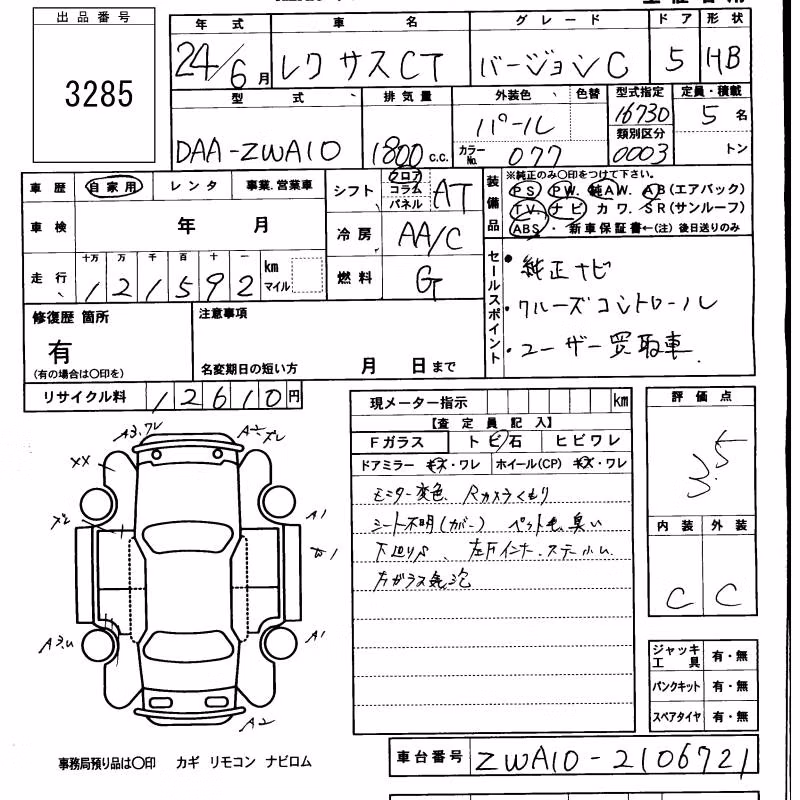 出品番号
3285
年式 車名 グレード ドア 形状
24/6月 レクサスCT バージョンC 5 HB
型式 排気量 外装色 色替 型式指定 定員・積載
DAA-ZWA10 1800c.c. パール 16730 5名
カラーNo. 077 類別区分 0003 トン
車歴 自家用 レンタ 事業.営業車
車検 年 月
走行 十万 万 千 百 十 一 km マイル
121592
シフト フロア コラム パネル AT
冷房 AA/C
燃料 G
装備品
※純正のみ〇印をつけて下さい。
PS PW. 純AW. AB(エアバック)
TV. ナビ カワ. SR(サンルーフ)
ABS・新車保証書←(注)後日送りのみ
セールスポイント
・純正ナビ
・クルーズコントロール
・ユーザー買取車
修復歴 箇所
有
(有の場合は〇印を)
注意事項
名変期日の短い方 月 日まで
リサイクル料 12610円
現メーター指示 km
【査定員記入】
Fガラス トビ石 ヒビワレ
ドアミラー キズ・ワレ ホイール(CP) キズ・ワレ
モニター変色、Rカメラくもり
シート不明(カバー) ペット毛臭い
下廻りS、左Fインナー、ステー小U
ガラス気泡
評価点
3.5
内装 外装
C C
ジャッキ工具 有・無
パンクキット 有・無
スペアタイヤ 有・無
A3.ワレ
XX
A1
A3.U
A1
A2
事務局預り品は〇印 カギ リモコン ナビロム
車台番号 ZWA10-2106721